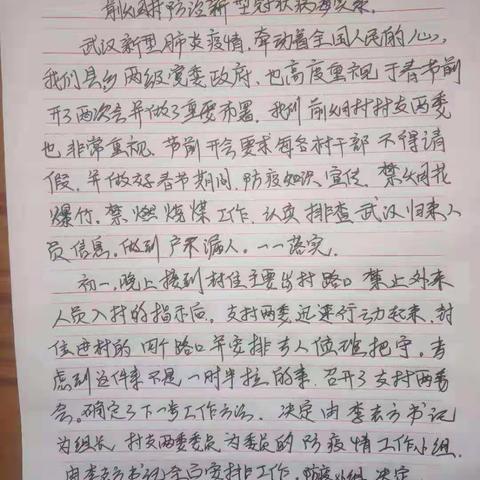 村预防新型冠状病毒感染.
武汉新型肺炎疫情,牵动着全国人民的心,
我们县乡两级党委政府,也高度重视于春节前
开了两次会并做了重要布署.我们前 村村支两委
也非常重视.节前开会要求每名村干部不得请
假,并做好春节期间,防疫知识宣传,禁 烟花
爆竹,禁燃烧煤工作.认真排查武汉归来人
员信息,做到户不漏人,一一落实.
初一,晚上接到村住主要出村路口禁止外来
人员入村的指示后,支村两委迅速行动起来,封
住进村的四个路口并安排专人值班把守.考
虑到这件事不是一时半拉的事,召开了支村两委
会.确定了下一步工作方法.决定由李 书记
为组长 村支两委委员为委员的防疫情工作小组.
由李 书记全面安排工作,防疫小组 决定